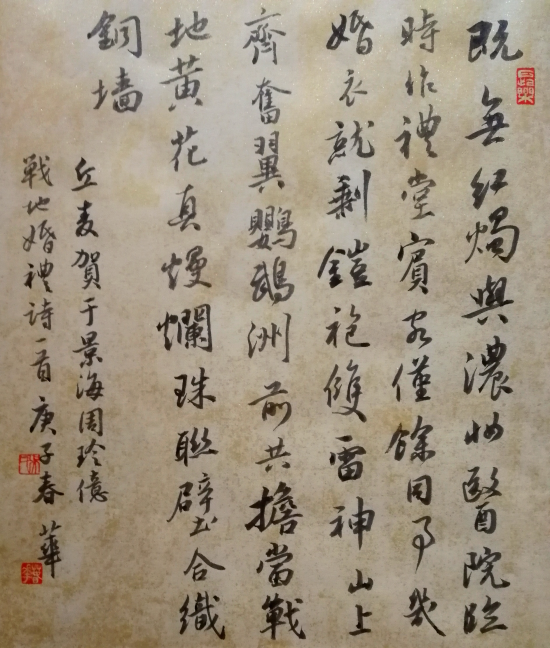 既無紅燭與濃妝醫院臨
時作禮堂賓客僅餘同事幾
婚衣就剩鎧袍雙雷神山上
齊奮翼鸚鵡洲前共擔當戰
地黃花真熳爛珠聯璧合織
銅墙
丘麦賀于景海周玲億
戰地婚禮詩一首庚子春 華